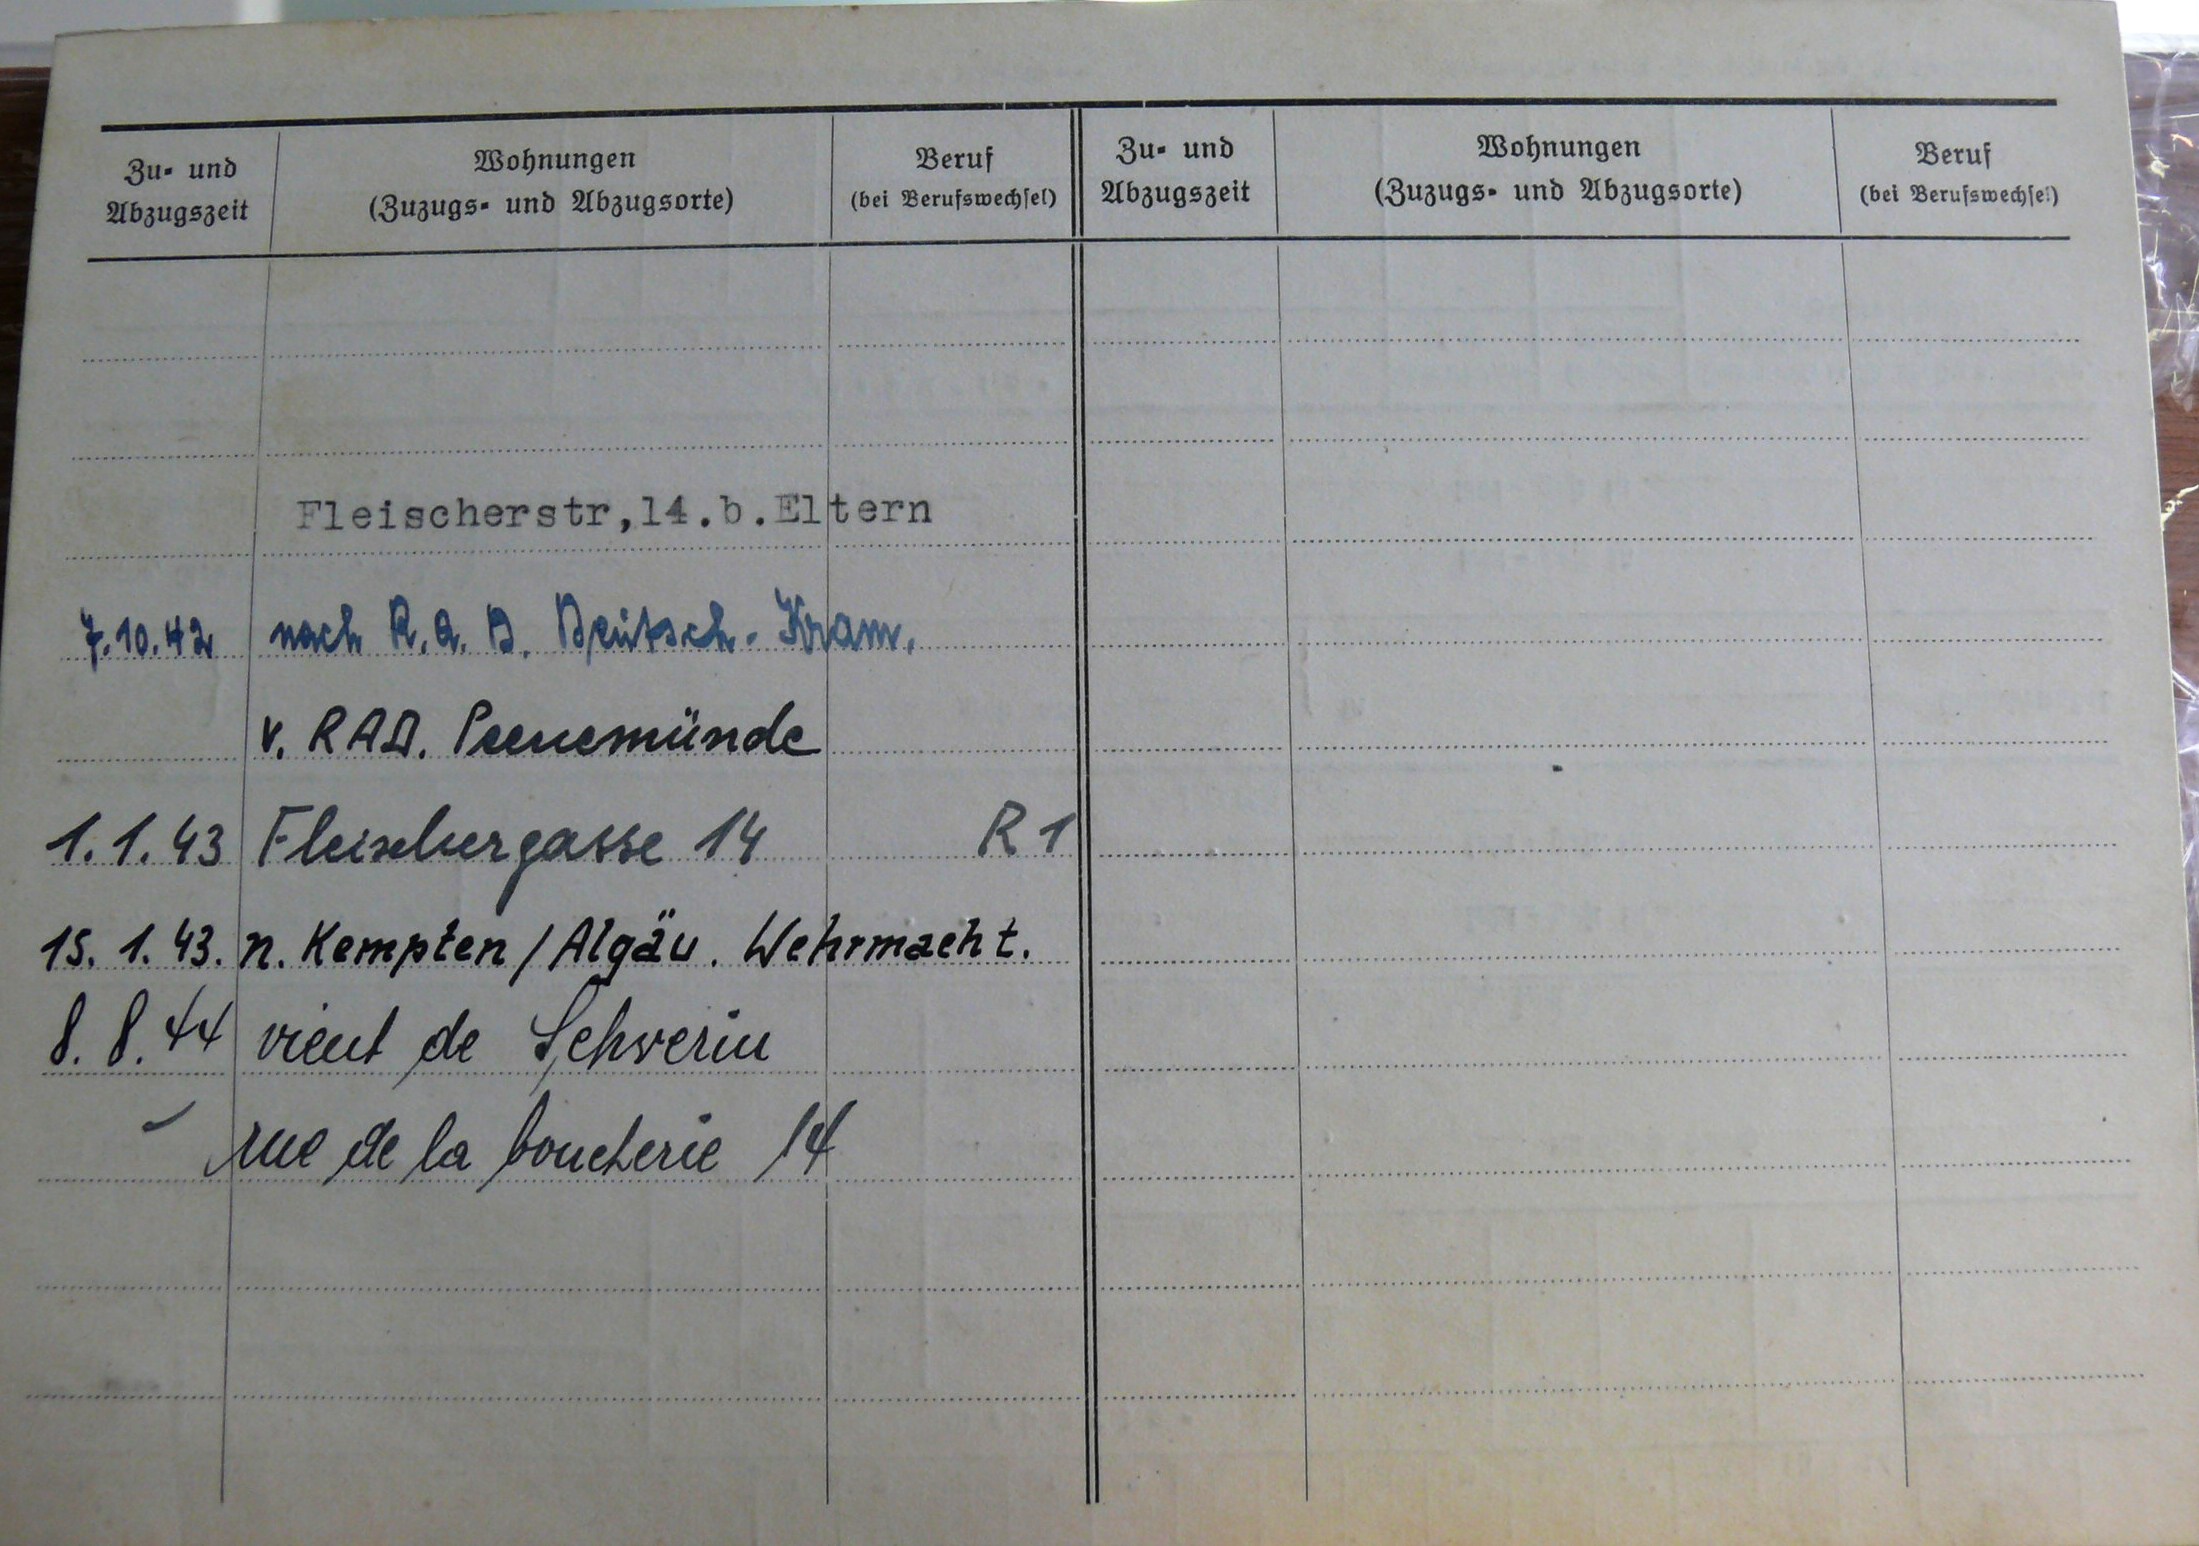 Zu- und Abzugszeit
Wohnungen (Zuzugs- und Abzugsorte)
Beruf (bei Berufswechsel)
Zu- und Abzugszeit
Wohnungen (Zuzugs- und Abzugsorte)
Beruf (bei Berufswechsel)
Fleischerstr,14.b.Eltern
7.10.42 nach R.A.D. Deutsch-Kram.
v. RAD. Peenemünde
1.1.43 Fleischergasse 14 R 1
15.1.43. n. Kempten/Algäu. Wehrmacht.
8.8.44 vient de Schwerin
- rue de la boucherie 14